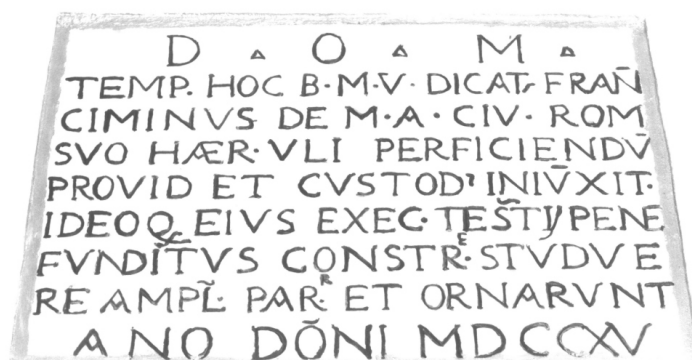 D ▵ O ▵ M ▵
TEMP. HOC B·M·V· DICAT, FRAÑ
CIMINVS DE M·A·CIV· ROM
SVO HÆR·VLI PERFICIENDV̄
PROVID ET CVSTOD' INIV̄XIT·
IDEOQ EIVS EXEC· TEST̃Y PENE
FVNDĨTVS CONSTRᴱ· STVDVE
RE AMPL̃· PARᴿ· ET ORNARVNT
ANO DÕNI MDCCXV